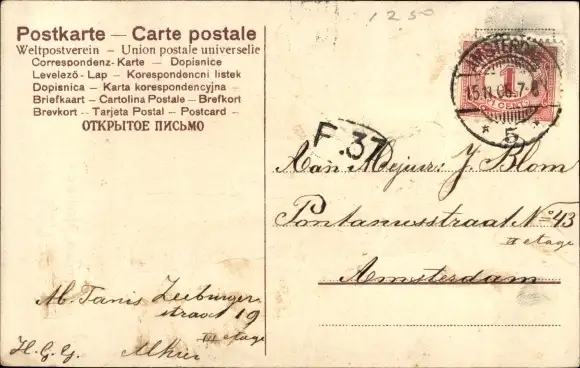 1250
Postkarte — Carte postale
Weltpostverein – Union postale universelle
Correspondenz-Karte – Dopisnice
Levelező-Lap – Korespondencni listek
Dopisnica – Karta korespondencyjna –
Briefkaart – Cartolina Postale – Brefkort
Brevkort – Tarjeta Postal – Postcard –
ОТКРЫТОЕ ПИСЬМО
AMSTERDAM
15.11.06.7-8
* 5 *
1
CENT
F.37
Aan Mejuw: J. Blom
Pontanusstraat No 43
II etage
Amsterdam
M. Tanis Zeeburger
straat 19
III etage
H.G.G. Alhier